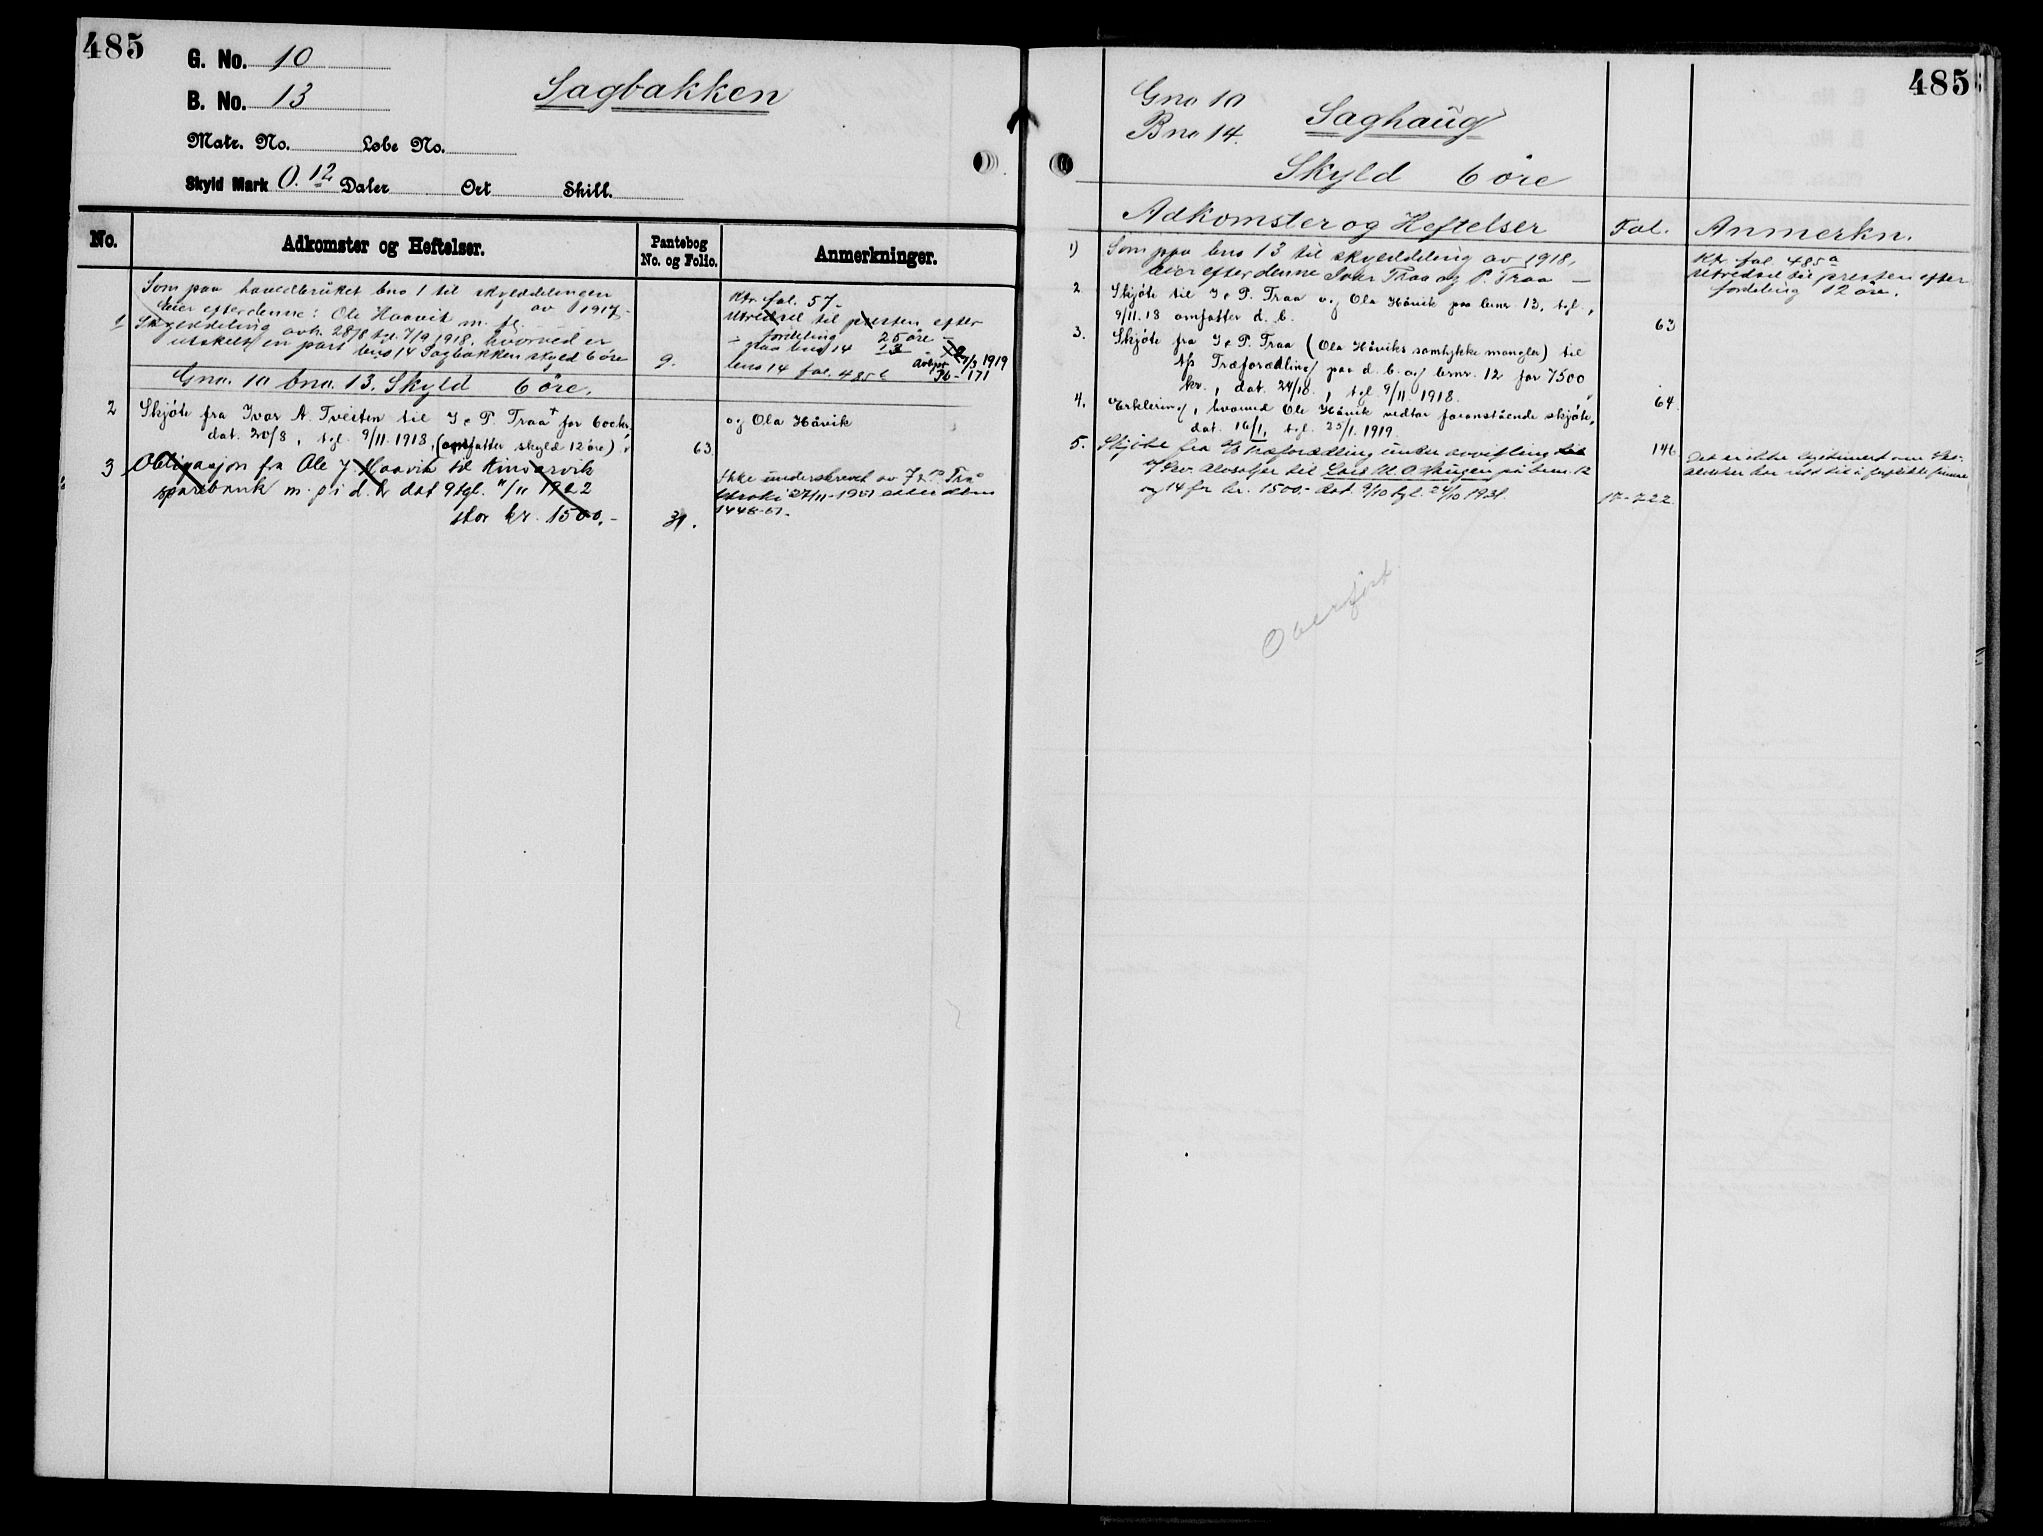 485
G. No. 10
B. No. 13
Sagbakken
Matr. No. Løbe No.
Skyld Mark 0.12 Daler Ort Skill.
No. Adkomster og Heftelser. Pantebog No. og Folio. Anmerkninger.
Som paa hovedbruket bno 1 til skylddelingen
av 1917.
Eier efter denne: Ole Haavik m. fl.
1 Skylddeling avh. 28/8 tgl. 7/9 1918, hvorved er
utskelt en part bno 14 Sagbakken skyld 6 öre 9.
Ktr. fol. 57.
Utredsel til presten efter
fordeling 25 öre
paa bno 14 13
bno 14 fol. 485 b
avlyst 7/3 1919
Pb - 171
Gno. 10 bno. 13. Skyld 6 öre.
2 Skjöte fra Ivar A. Tveiten til I & P. Traa + for 600 kr.
dat. 20/8, tgl. 9/11. 1918, (omfatter skyld 12 öre) 63
og Ola Håvik
3 Obligasjon fra Ole J Haavik til Kinsarvik
sparebank m. p. i d. b. dat 9 tgl. 11/11 1922
stor kr. 1500.- 31.
Ikke underskrevet av
27/11 - 1951
1448-51.
485
Gno 10
Bno 14.
Saghaug
Skyld 6 öre
Adkomster og Heftelser Fol. Anmerkn.
1) Som paa bno 13 til skylddeling av 1918,
eier efter denne Ivar Traa og P. Traa —
Ktr. fol. 485 a
Utredsel til presten efter
fordeling 12 öre.
2 Skjöte til I & P. Traa og Ola Håvik paa bnr 13, tgl.
9/11. 18 omfatter d. b. 63
3. Skjöte fra I & P. Traa (Ola Håviks samtykke mangler) til
A/s Træforædling paa d. b. og bnr. 12 for 7500
kr., dat. 24/10, tgl. 9/11 1918. 64.
4. Erklering, hvorved Ole Håvik vedtar foranstående skjöte,
dat. 16/1, tgl. 25/1. 1919 146
5. Skjöte fra A/S Træforædling under avvikling
til Lars M. O. Haugen på bnr. 12
og 14 for kr. 1500.- dat. 9/10 tgl. 24/10 1931. 17-722.
Det er ikke legitimert om
Overfört